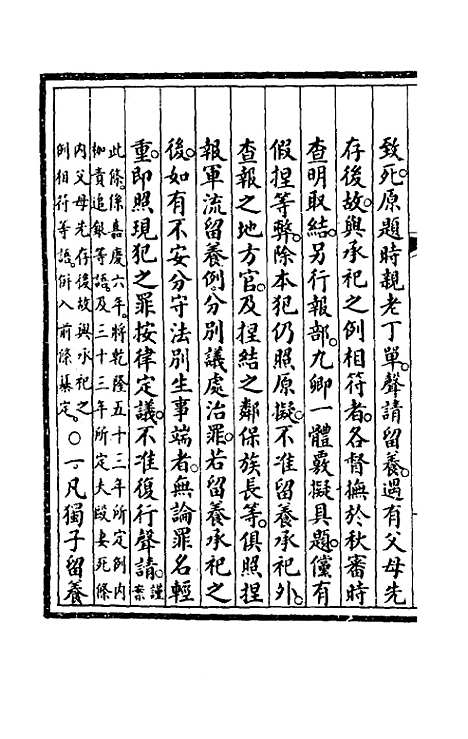 致死原題時親老丁單聲請留養遇有父母先
存後故與承祀之例相符者各督撫於秋審時
查明取結另行報部九卿一體覈擬具題儻有
假捏等弊除本犯仍照原擬不准留養承祀外
查報之地方官及捏結之鄰保族長等俱照捏
報軍流留養例分別議處治罪若留養承祀之
後如有不安分守法別生事端者無論罪名輕
重即照現犯之罪按律定議不准復行聲請謹案
此條係嘉慶六年將乾隆五十三年所定例內
枷責追銀等語及三十三年所定夫毆妻死條
內父母先存後故與承祀之
例相符等語併入前條纂定○一凡獨子留養